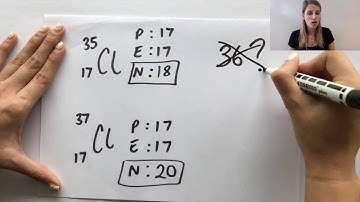 35
17 Cl
P : 17
E : 17
N : 18
36?
37
17 Cl
P : 17
E : 17
N : 20